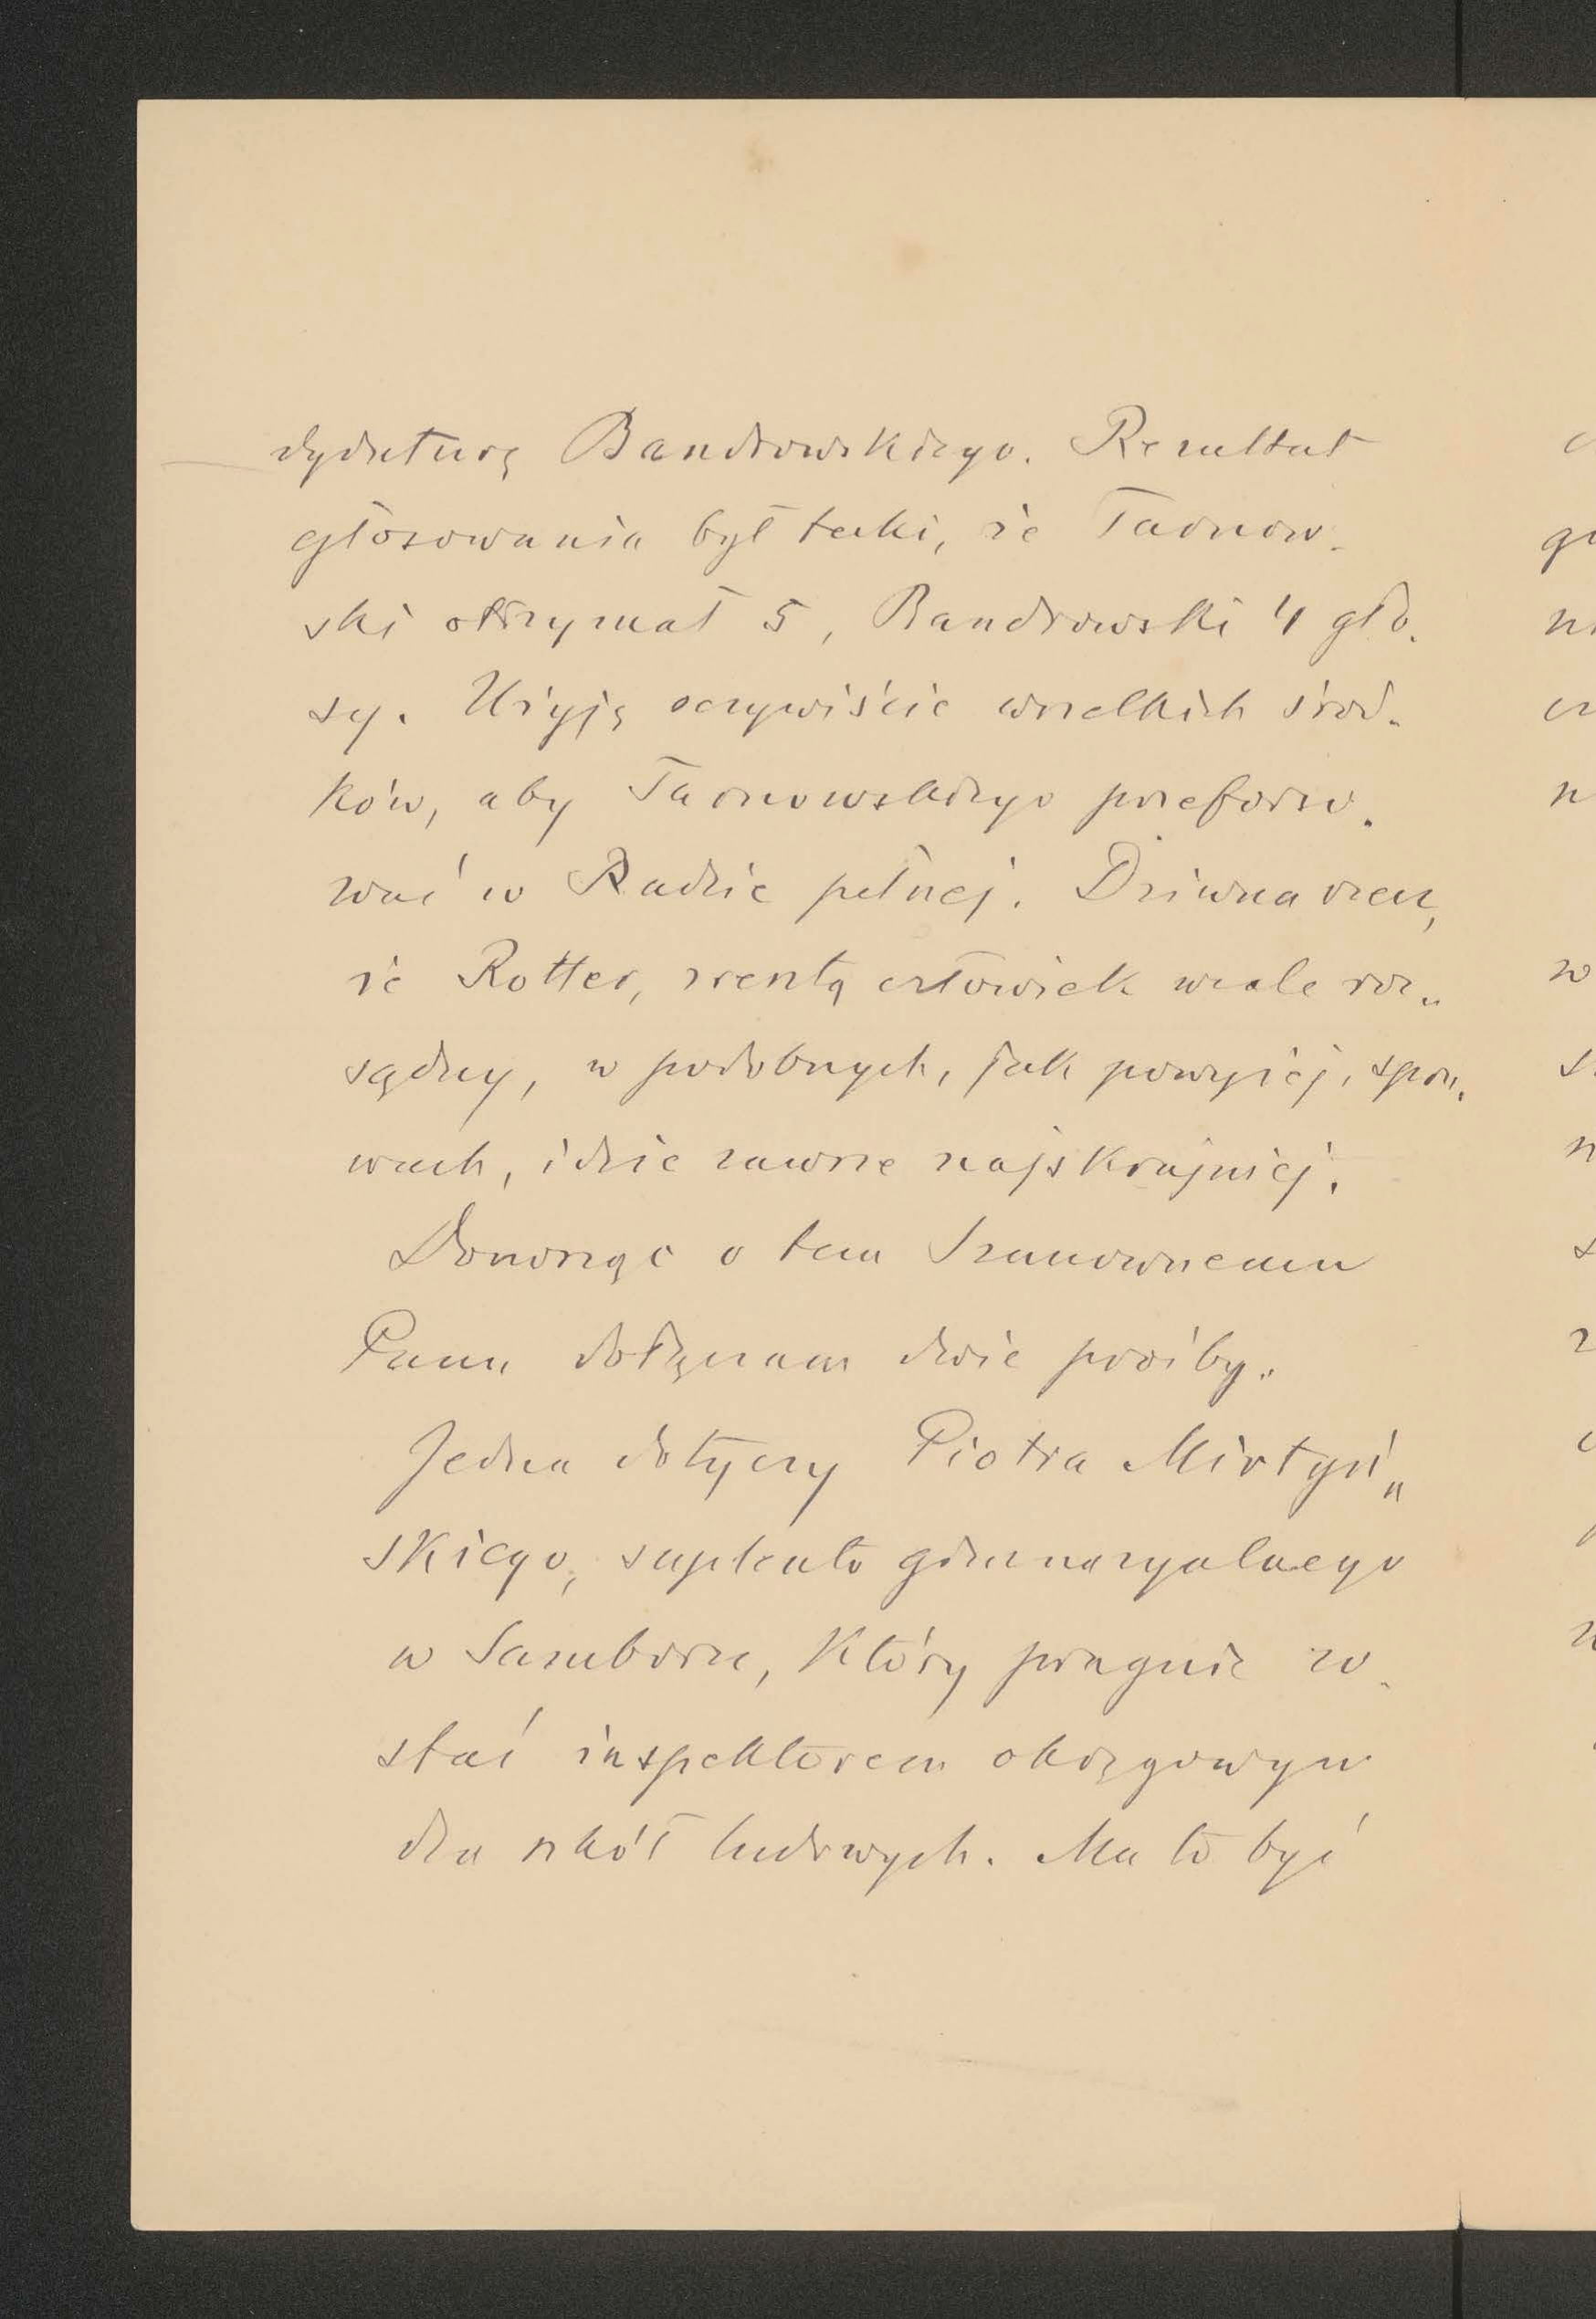 dydaturę Bandrowskiego. Rezultat
głosowania był taki, że Tarnow-
ski otrzymał 5, Bandrowski 4 gło-
sy. Użyję oczywiście wszelkich środ-
ków, aby Tarnowskiego przeforso-
wać w Radzie pełnej. Dziwna rzecz,
że Rotter, zresztą człowiek wcale roz„
sądny, w podobnych, jak powyżej, spra„
wach, idzie zawsze najskrajniej.
Donosząc o tem Szanownemu
Panu dołączam dwie prośby.
Jedna dotyczy Piotra Mirtyń„
skiego, suplenta gimnazyalnego
w Samborze, który pragnie zo-
stać inspektorem okręgowym
dla szkół ludowych. Ma to być